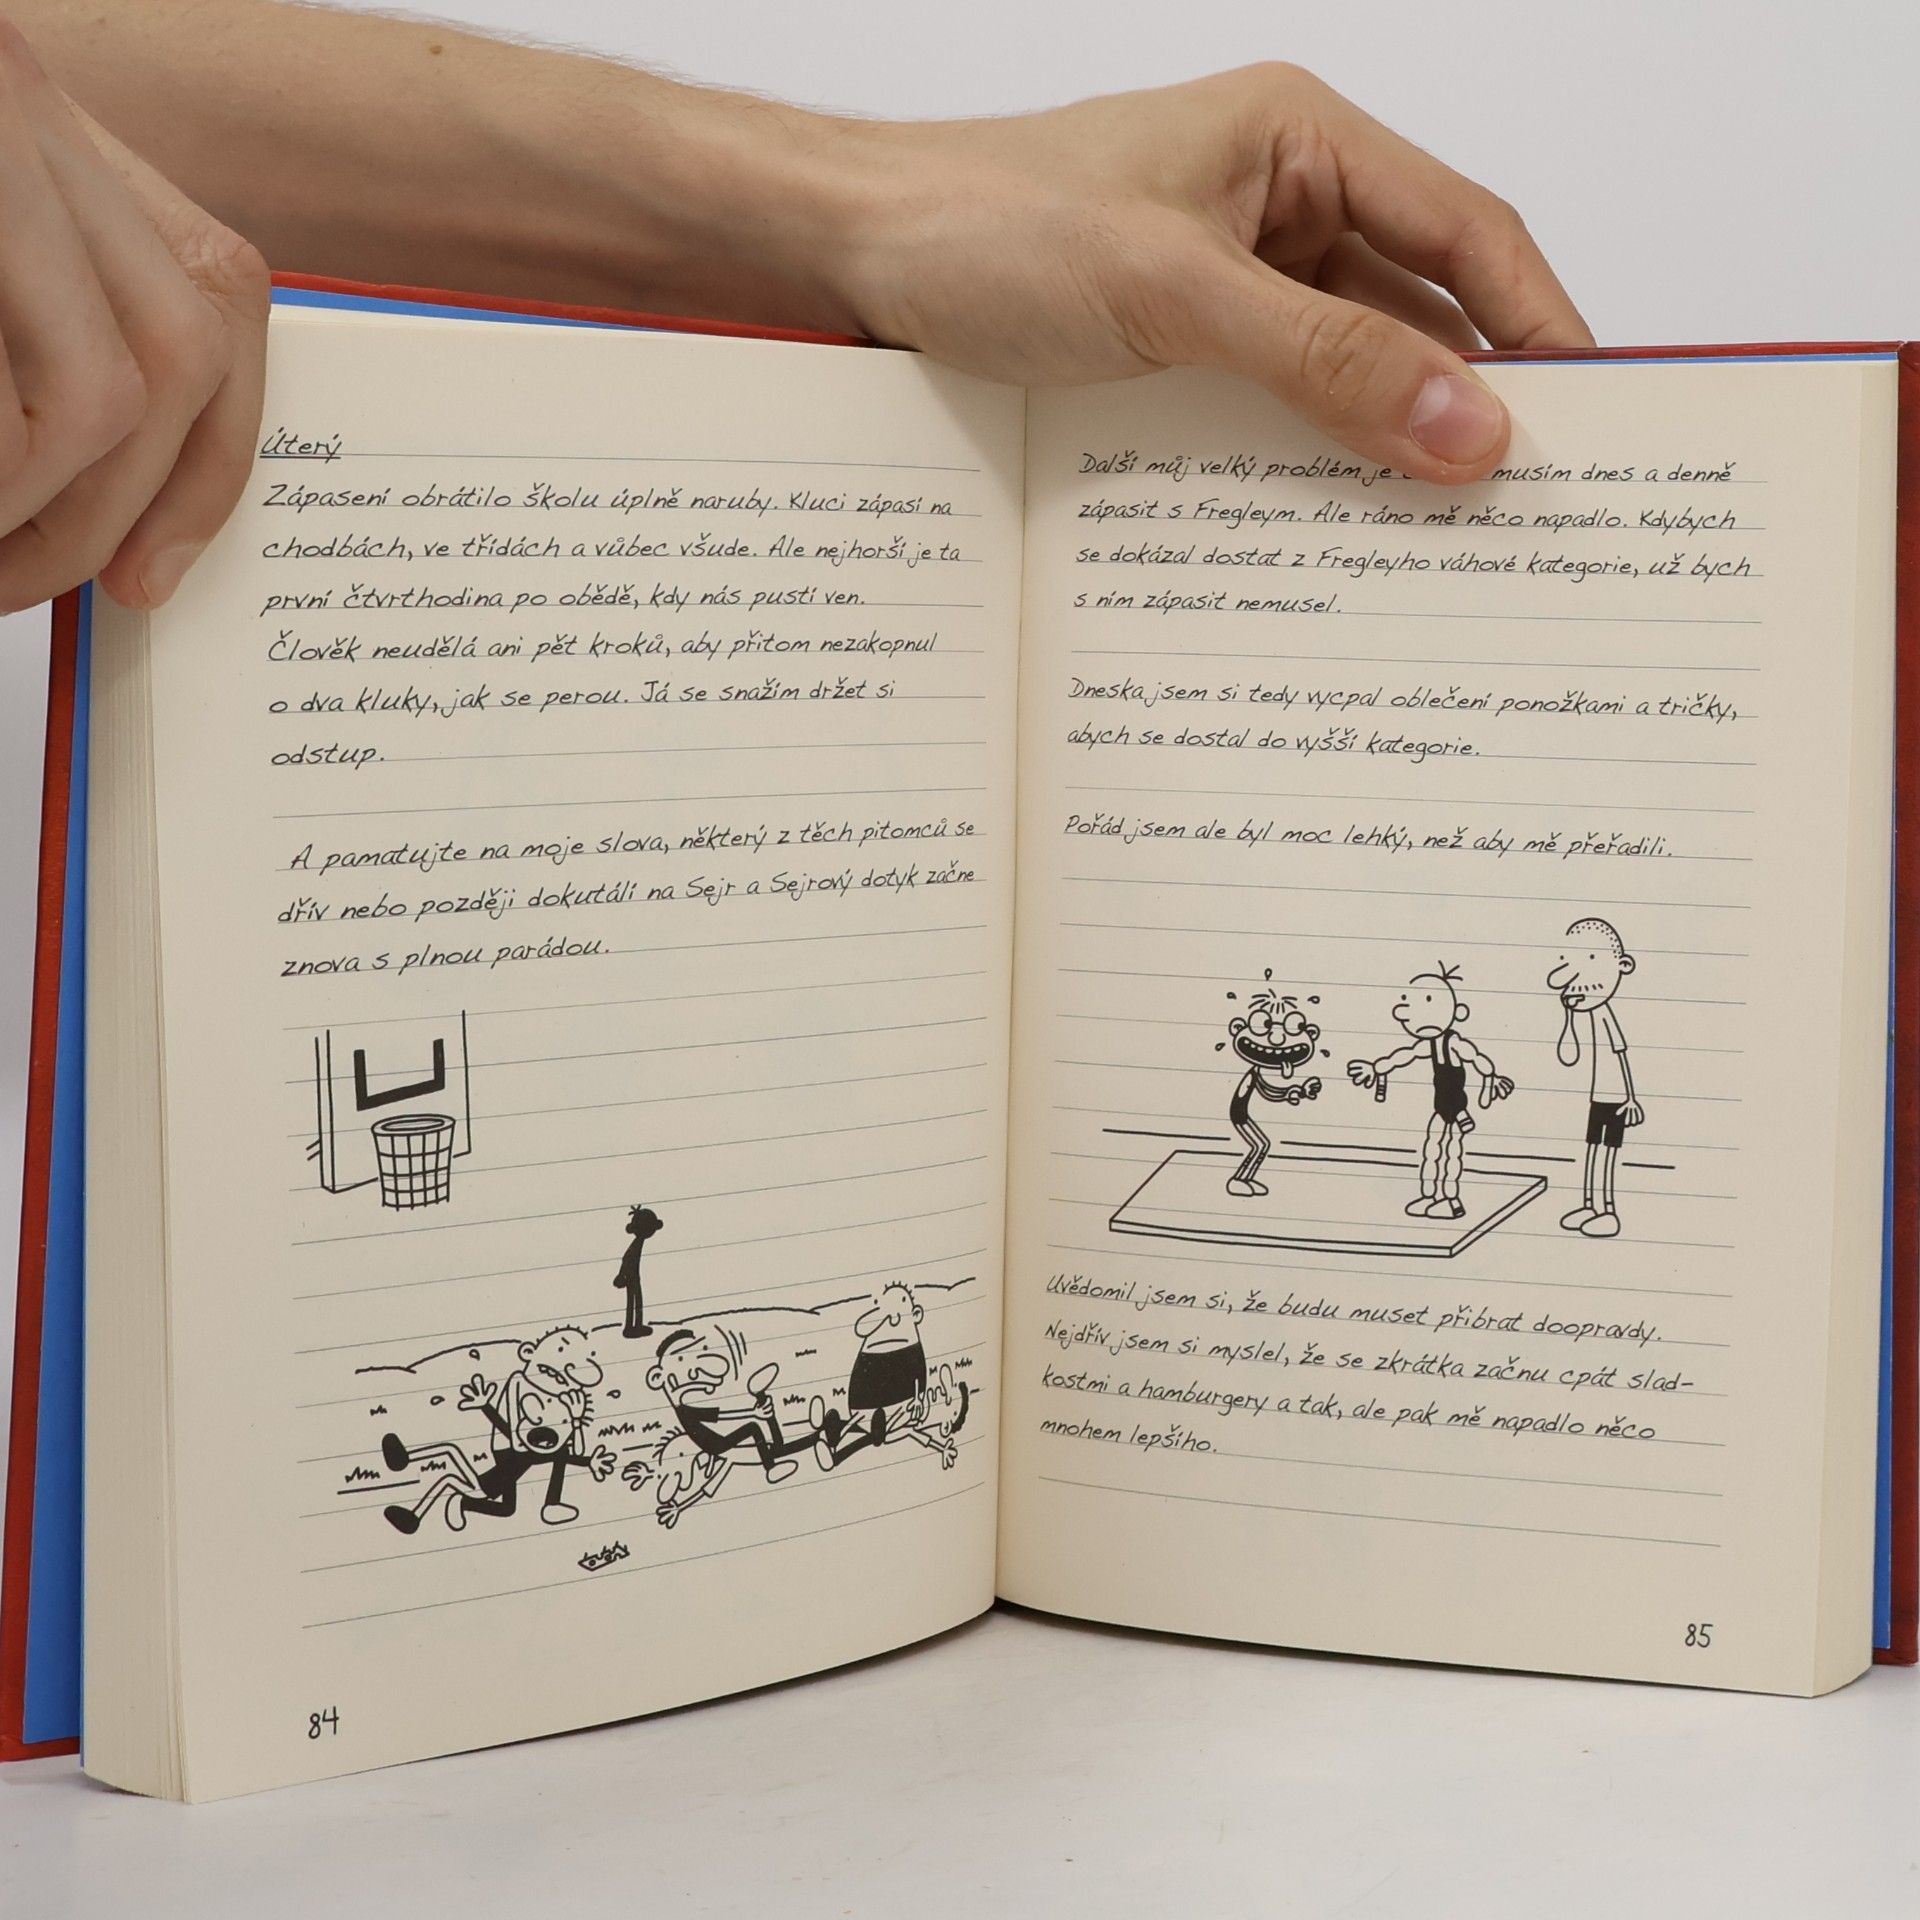 Úterý
Zápasení obrátilo školu úplně naruby. Kluci zápasí na
chodbách, ve třídách a vůbec všude. Ale nejhorší je ta
první čtvrthodina po obědě, kdy nás pustí ven.
Člověk neudělá ani pět kroků, aby přitom nezakopnul
o dva kluky, jak se perou. Já se snažím držet si
odstup.
A pamatujte na moje slova, některý z těch pitomců se
dřív nebo později dokutálí na Sejr a Sejrový dotyk začne
znova s plnou parádou.
84
Další můj velký problém je musím dnes a denně
zápasit s Fregleym. Ale ráno mě něco napadlo. Kdybych
se dokázal dostat z Fregleyho váhové kategorie, už bych
s ním zápasit nemusel.
Dneska jsem si tedy vycpal oblečení ponožkami a tričky,
abych se dostal do vyšší kategorie.
Pořád jsem ale byl moc lehký, než aby mě přeřadili.
Uvědomil jsem si, že budu muset přibrat doopravdy.
Nejdřív jsem si myslel, že se zkrátka začnu cpát slad-
kostmi a hamburgery a tak, ale pak mě napadlo něco
mnohem lepšího.
85